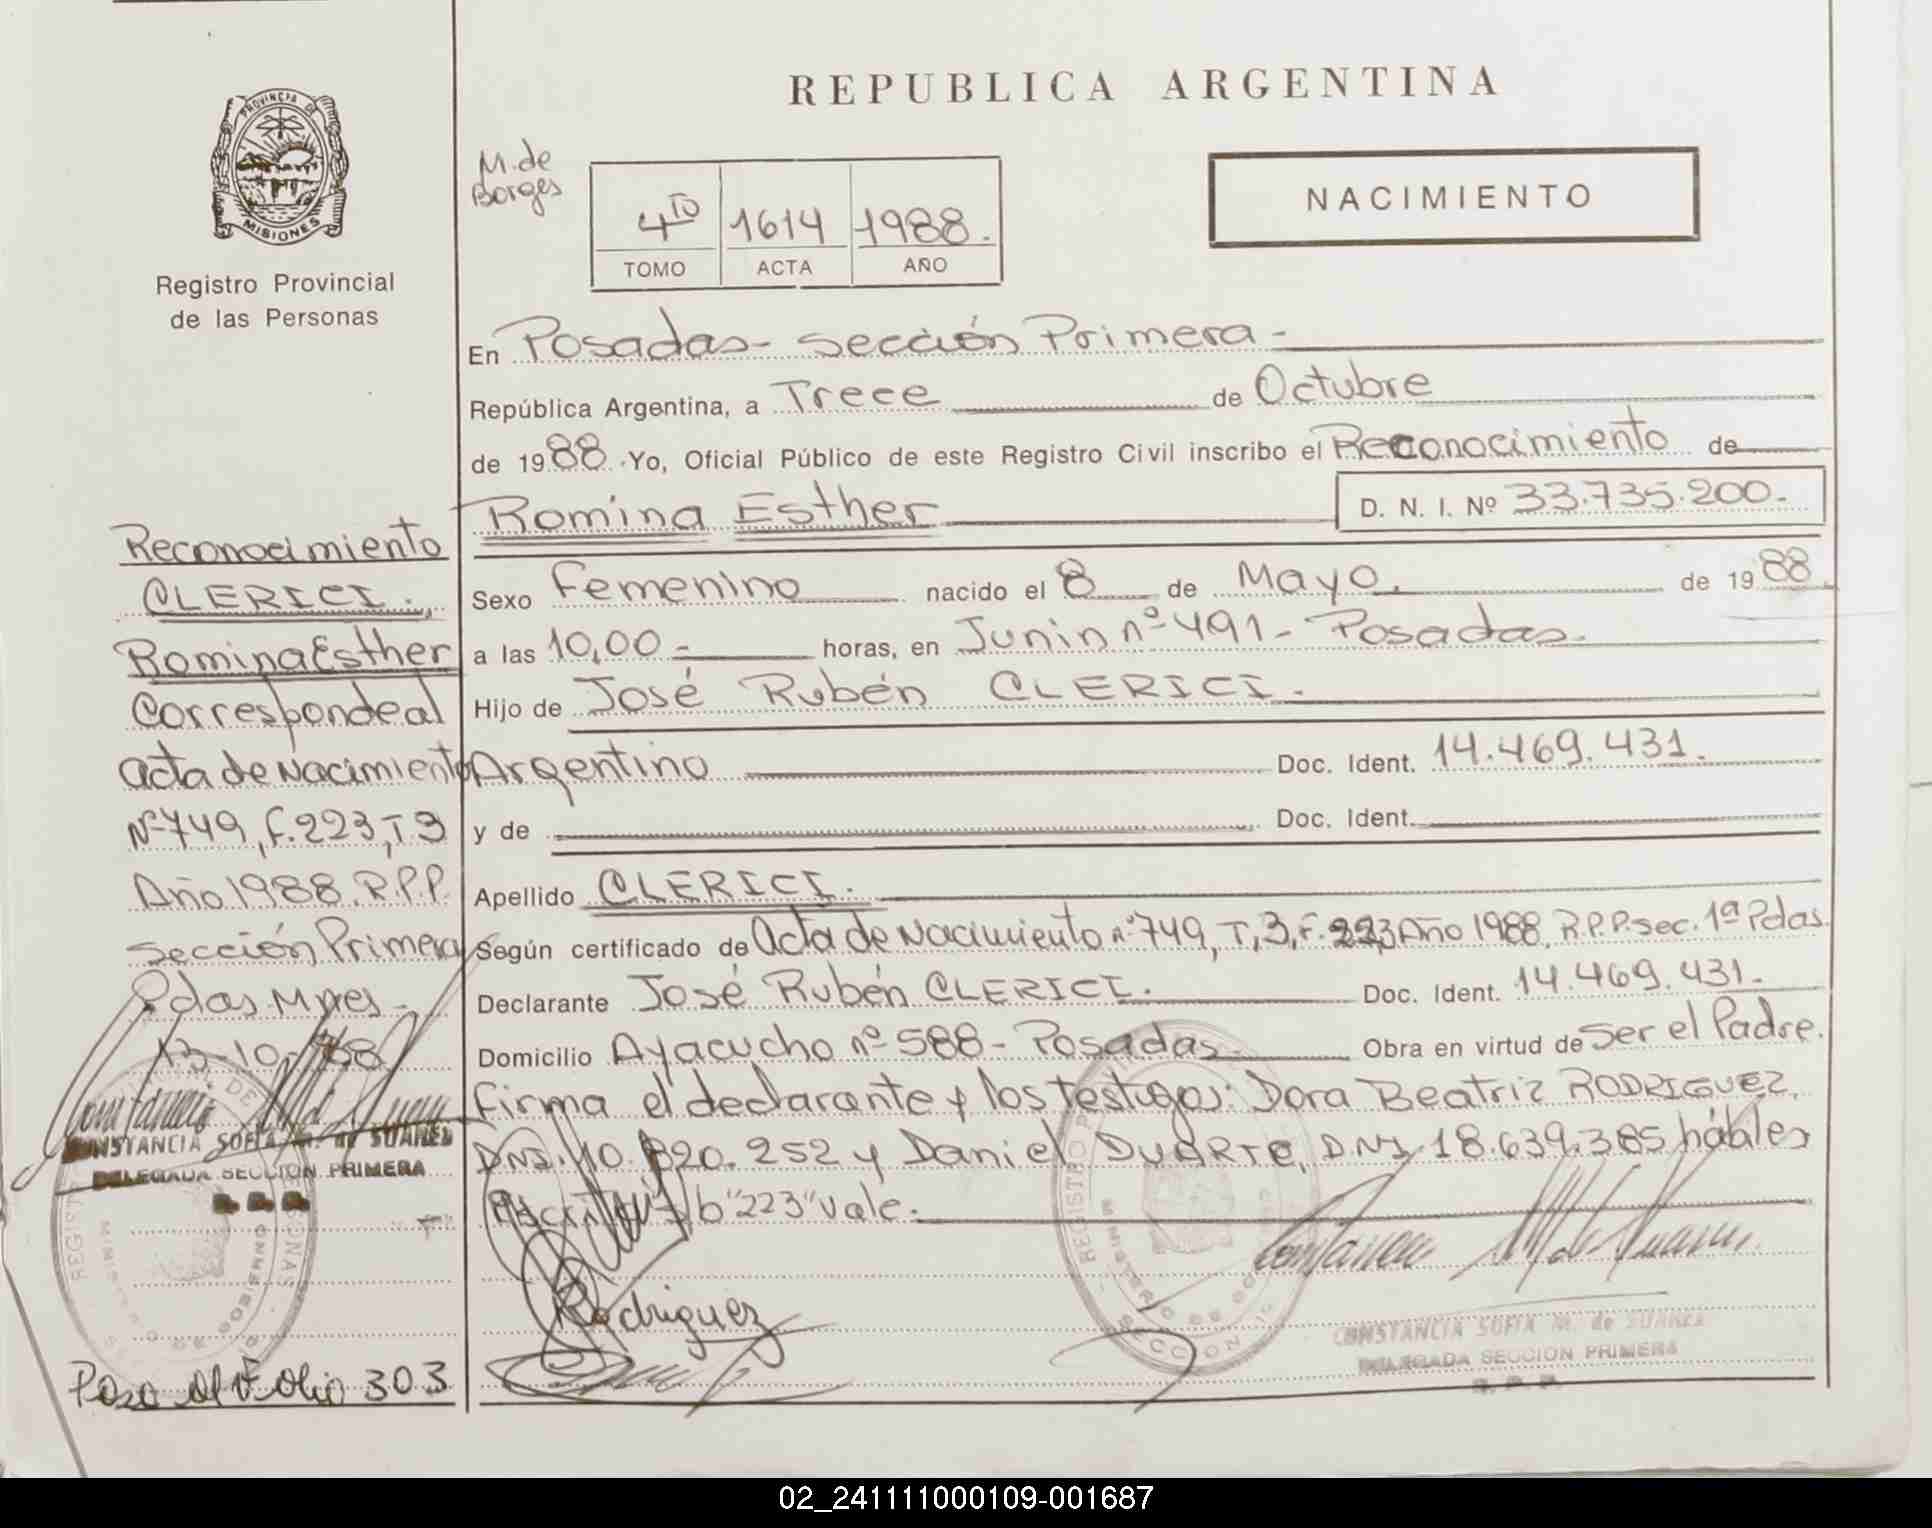 REPUBLICA ARGENTINA
PROVINCIA DE
MISIONES
Registro Provincial
de las Personas
M. de
Borges
4TO 1614 1988.
TOMO ACTA AÑO
NACIMIENTO
En Posadas- Sección Primera-
República Argentina, a Trece de Octubre
de 1988. Yo, Oficial Público de este Registro Civil inscribo el Reconocimiento de
Romina Esther D. N. I. Nº 33.735.200-
Sexo Femenino nacido el 8 de Mayo. de 1988.
a las 10,00- horas, en Junin nº 491- Posadas-
Hijo de José Rubén CLERICI-
Argentino Doc. Ident. 14.469.431.
y de Doc. Ident.
Apellido CLERICI.
Según certificado de Acta de Nacimiento nº 749, T, 3, F. 223 Año 1988, R.P.P. sec. 1ª Pdas.
Declarante José Rubén CLERICI. Doc. Ident. 14.469.431-
Domicilio Ayacucho nº 588- Posadas- Obra en virtud de Ser el Padre.
Firma el declarante y los testigos: Dora Beatriz RODRIGUEZ,
DNI. 10.820.252 y Daniel DUARTE, DNI 18.639.385 hábiles
b "223" vale.
Rodriguez
CONSTANCIA SOFIA M. de SUAREZ
DELEGADA SECCION PRIMERA
Reconocimiento
CLERICI.,
Romina Esther
Corresponde al
acta de Nacimiento
Nº 749, F. 223, T. 3
Año 1988. R.P.P.
Sección Primera
Pdas. Mnes-
13-10-88
CONSTANCIA SOFIA M. de SUAREZ
DELEGADA SECCION PRIMERA
Pasa al Folio 303
02_241111000109-001687